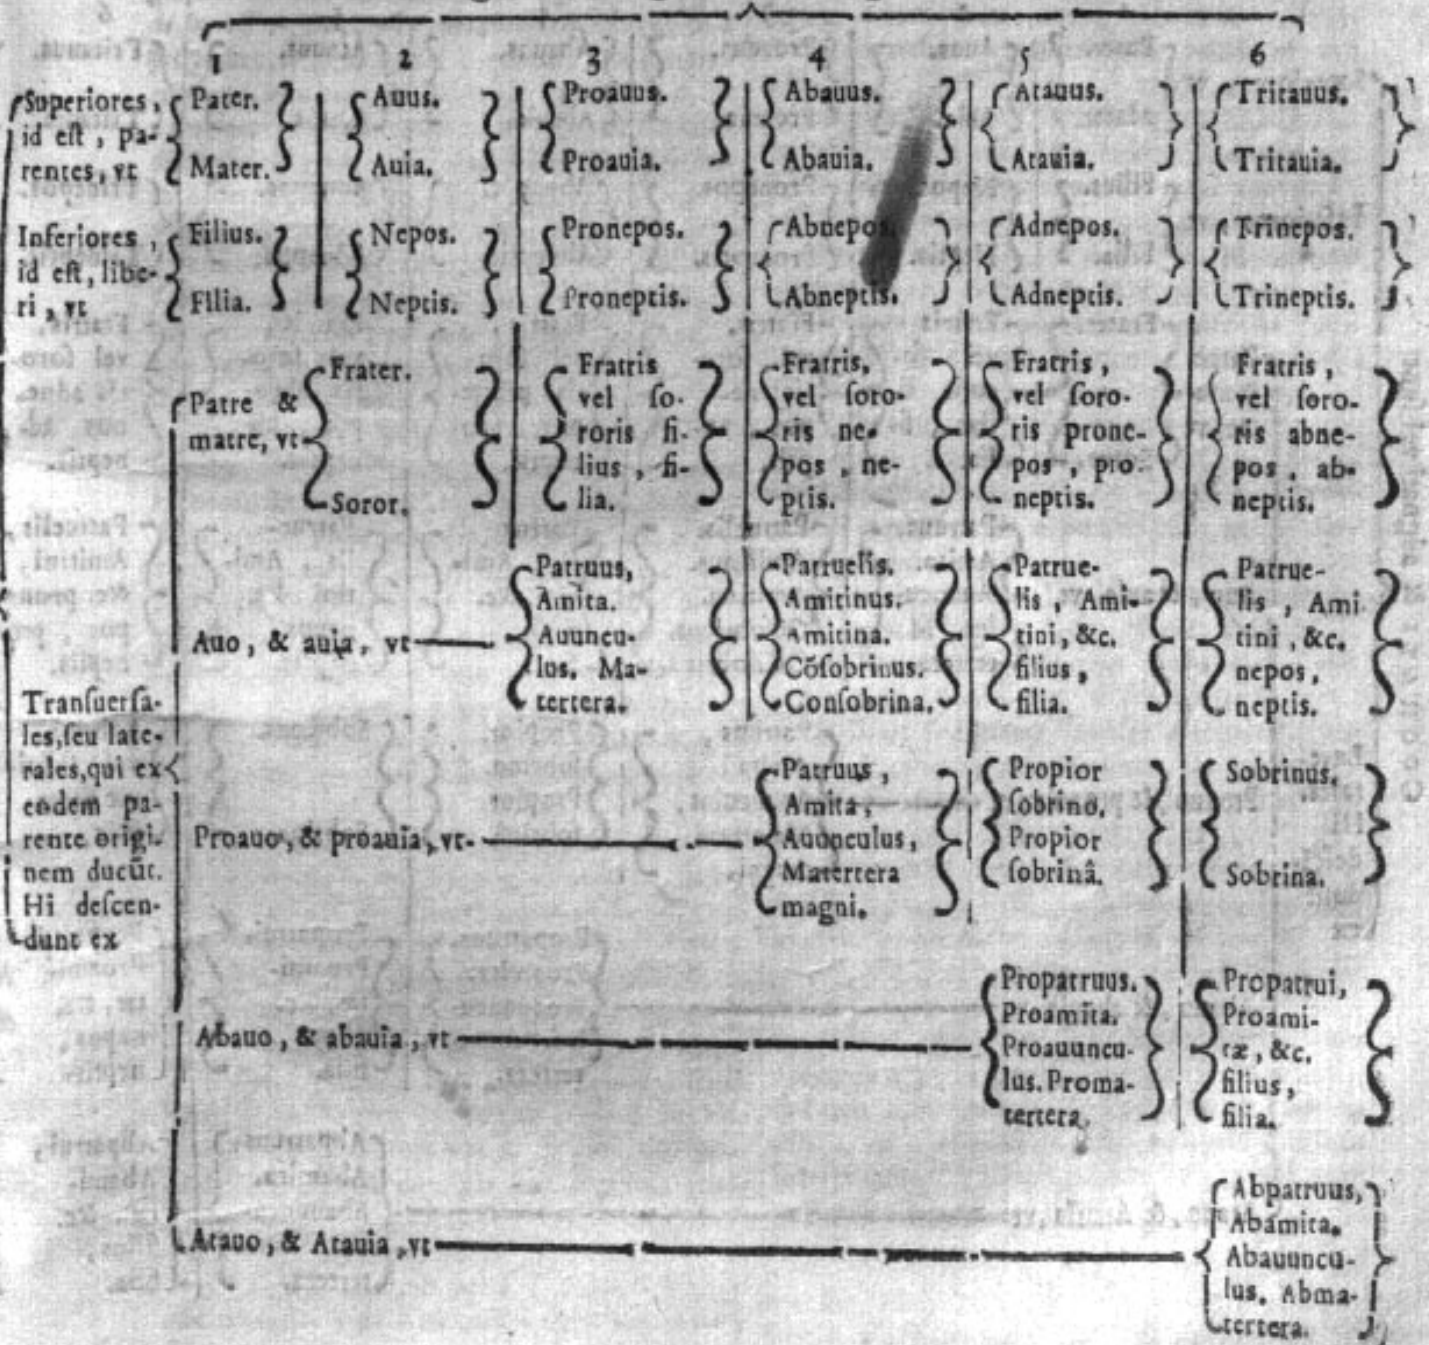 1 2 3 4 5 6
Superiores,
id eſt, pa-
rentes, vt
Pater.
Mater.
Auus.
Auia.
Proauus.
Proauia.
Abauus.
Abauia.
Atauus.
Atauia.
Tritauus.
Tritauia.
Inferiores,
id eſt, libe-
ri, vt
Filius.
Filia.
Nepos.
Neptis.
Pronepos.
Proneptis.
Abnepos.
Abneptis.
Adnepos.
Adneptis.
Trinepos.
Trineptis.
Tranſuerſa-
les, ſeu late-
rales, qui ex
eodem pa-
rente origi-
nem ducūt.
Hi deſcen-
dunt ex
Patre &
matre, vt
Frater.
Soror.
Fratris
vel ſo-
roris fi-
lius, fi-
lia.
Fratris,
vel ſoro-
ris ne-
pos, ne-
ptis.
Fratris,
vel ſoro-
ris prone-
pos, pro-
neptis.
Fratris,
vel ſoro-
ris abne-
pos, ab-
neptis.
Auo, & auia, vt
Patruus,
Amita.
Auuncu-
lus. Ma-
tertera.
Patruelis.
Amitinus.
Amitina.
Cōſobrinus.
Conſobrina.
Patrue-
lis, Ami-
tini, &c.
filius,
filia.
Patrue-
lis, Ami
tini, &c.
nepos,
neptis.
Proauo, & proauia, vt
Patruus,
Amita,
Auunculus,
Matertera
magni.
Propior
ſobrino.
Propior
ſobrinâ.
Sobrinus.
Sobrina.
Abauo, & abauia, vt
Propatruus.
Proamita.
Proauuncu-
lus. Proma-
tertera.
Propatrui,
Proami-
tæ, &c.
filius,
filia.
Atauo, & Atauia, vt
Abpatruus,
Abamita.
Abauuncu-
lus. Abma-
tertera.